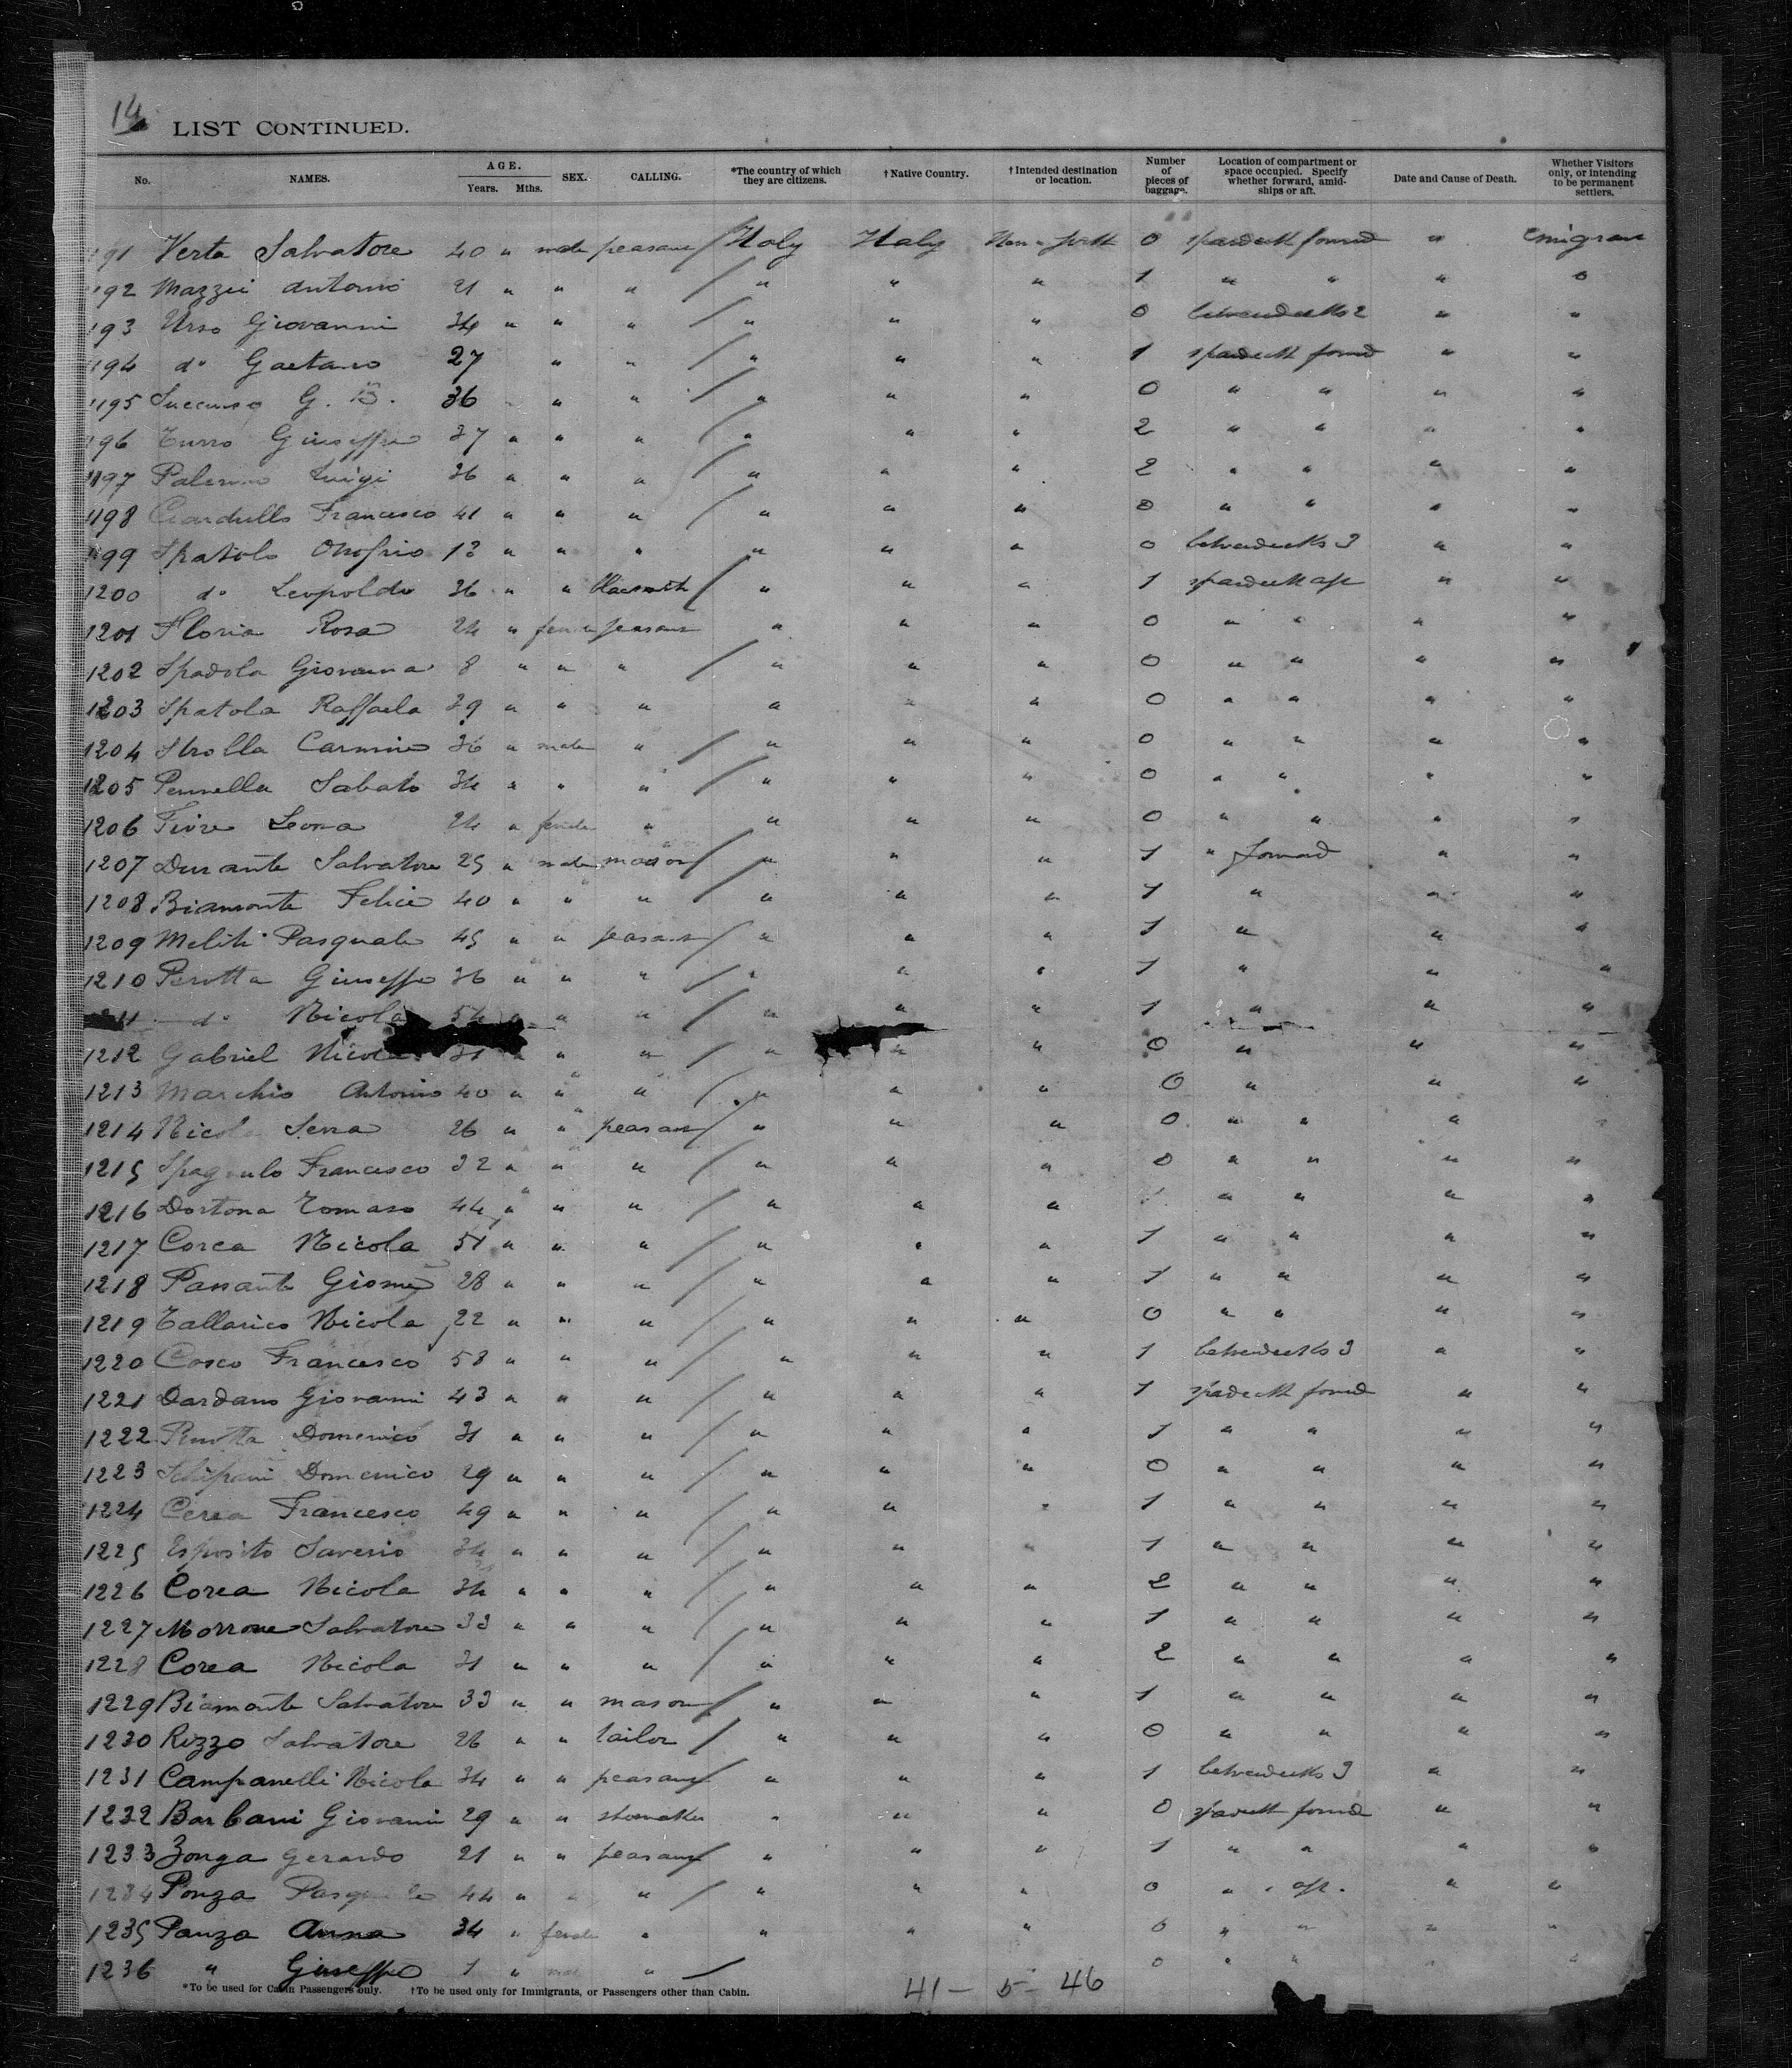 14
LIST CONTINUED.
No. NAMES. AGE. Years. Mths. SEX. CALLING. *The country of which they are citizens. †Native Country. †Intended destination or location. Number of pieces of baggage. Location of compartment or space occupied. Specify whether forward, amidships or aft. Date and Cause of Death. Whether Visitors only, or intending to be permanent settlers.
1191 Verta Salvatore 40 " male peasant Italy Italy New-York 0 spardeck forward " emigrant
1192 Mazzei Antonio 21 " " " " " " 1 " " " 0
1193 Urso Giovanni 34 " " " " " " 0 betwendecks 2 " "
1194 do Gaetano 27 " " " " " 1 spardeck forwd " "
1195 G. B. 36 " " " " " 0 " " " "
1196 Turro Giuseppe 37 " " " " " " 2 " " " "
1197 Palermo Luigi 36 " " " " " " 2 " " " "
1198 Ciardullo Francesco 41 " " " " " " 0 " " " "
1199 Spatola Onofrio 12 " " " " " " 0 betwendecks 3 " "
1200 do Leopoldo 36 " " blacsmith " " " 1 spardeck aft " "
1201 Floria Rosa 24 " female peasant " " " 0 " " " "
1202 Spadola Giovanna 8 " " " " " " 0 " " " "
1203 Spatola Raffaela 39 " " " " " " 0 " " " "
1204 Strolla Carmine 36 " male " " " " 0 " " " "
1205 Pennella Sabato 34 " " " " " " 0 " " " "
1206 Fiore Leona 24 " female " " " " 0 " " " "
1207 Durante Salvatore 25 " male mason " " " 1 " forward " "
1208 Biamonte Felice 40 " " " " " " 1 " " "
1209 Meliti Pasquale 45 " " peasant " " " 1 " " "
1210 Perotta Giuseppe 36 " " " " " " 1 " " "
1211 do Nicola 54 " " " " " " 1 " " "
1212 Gabriel Nicola 31 " " " " " " 0 " " "
1213 Marchio Antonio 40 " " " " " " 0 " " "
1214 Nicola Serra 26 " " peasant " " " 0 " " "
1215 Spagnulo Francesco 32 " " " " " " 0 " " " "
1216 Dortona Tomaso 44 " " " " " " 1 " " " "
1217 Corea Nicola 51 " " " " " " 1 " " " "
1218 Passante 28 " " " " " " 1 " " " "
1219 Tallarico Nicola 22 " " " " " " 0 " " " "
1220 Cosco Francesco 58 " " " " " " 1 betwendecks 3 " "
1221 Dardano Giovanni 43 " " " " " " 1 spardeck forwd " "
1222 Perotta Domenico 31 " " " " " " 1 " " " "
1223 Schipani Domenico 29 " " " " " " 0 " " " "
1224 Cerea Francesco 49 " " " " " " 1 " " " "
1225 Esposito Saverio 34 " " " " " " 1 " " " "
1226 Corea Nicola 34 " " " " " " 2 " " " "
1227 Morrone Salvatore 33 " " " " " " 1 " " " "
1228 Corea Nicola 31 " " " " " " 2 " " " "
1229 Biamonte Salvatore 33 " " mason " " " 1 " " " "
1230 Rizzo Salvatore 26 " " tailor " " " 0 " " " "
1231 Campanelli Nicola 34 " " peasant " " " 1 betwendecks 3 " "
1232 Barbani Giovanni 29 " " shomaker " " " 0 spardeck forwd " "
1233 Zonga Gerardo 21 " " peasant " " " 1 " " " "
1234 Ponza Pasquale 44 " " " " " " 0 " aft. " "
1235 Panza Anna 34 " female " " " " 0 " " " "
1236 " Giuseppe 1 " male " 0 " " " "
*To be used for Cabin Passengers only. †To be used only for Immigrants, or Passengers other than Cabin.
41 - 5 - 46